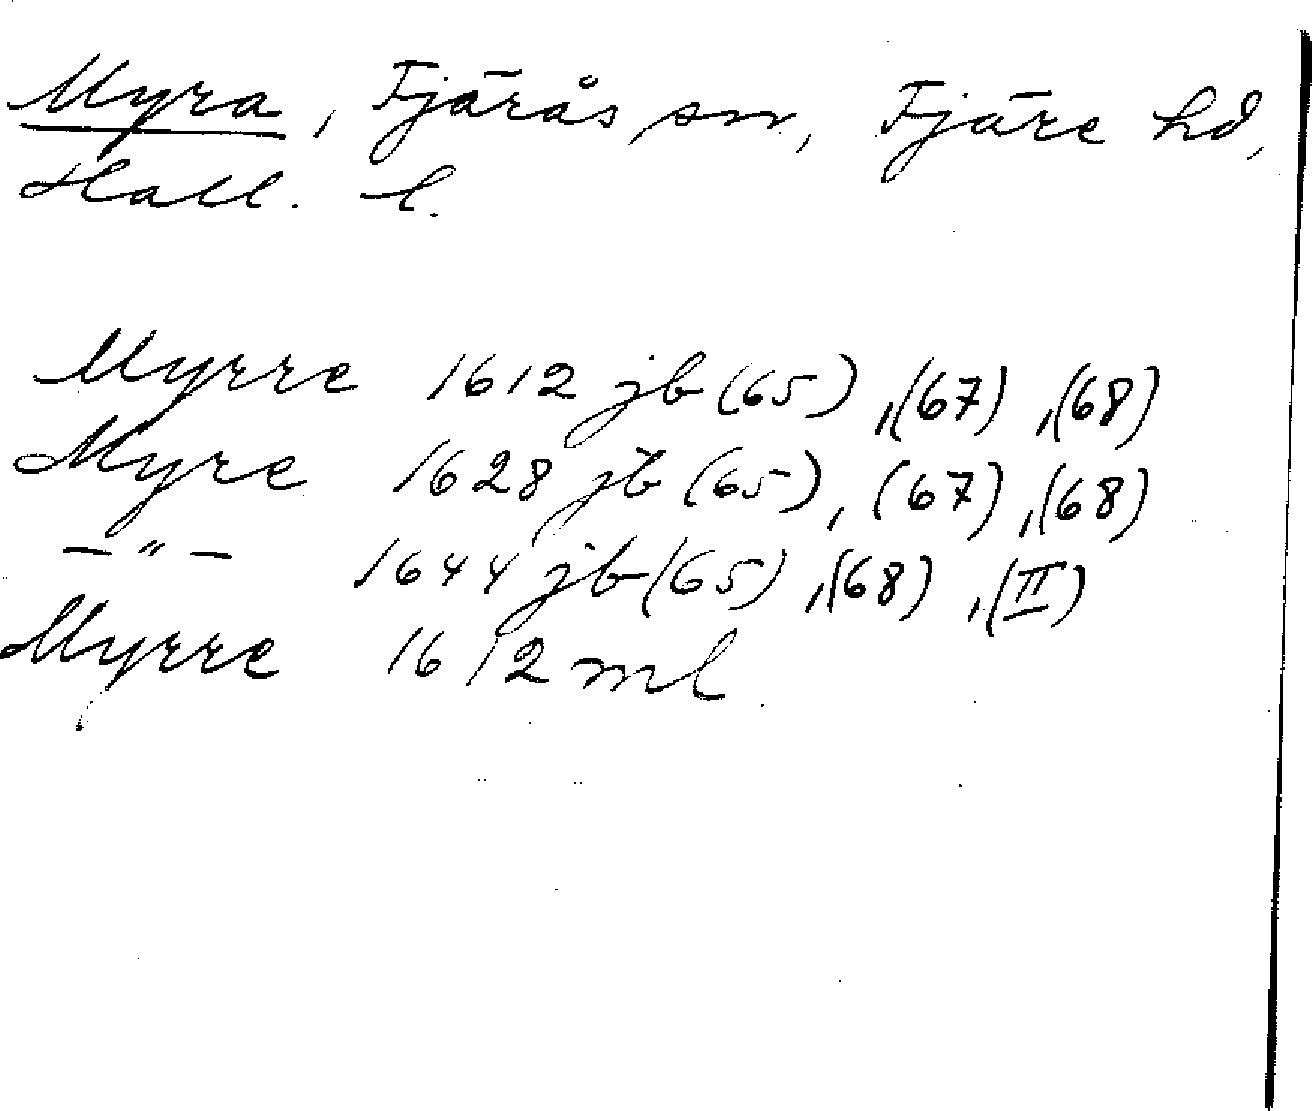 Myra, Fjärås sn, Fjäre hd,
Hall. l.
Myrre 1612 jb (65), (67), (68)
Myre 1628 jb (65), (67), (68)
— " — 1644 jb (65), (68), (II)
Myrre 1612 ml